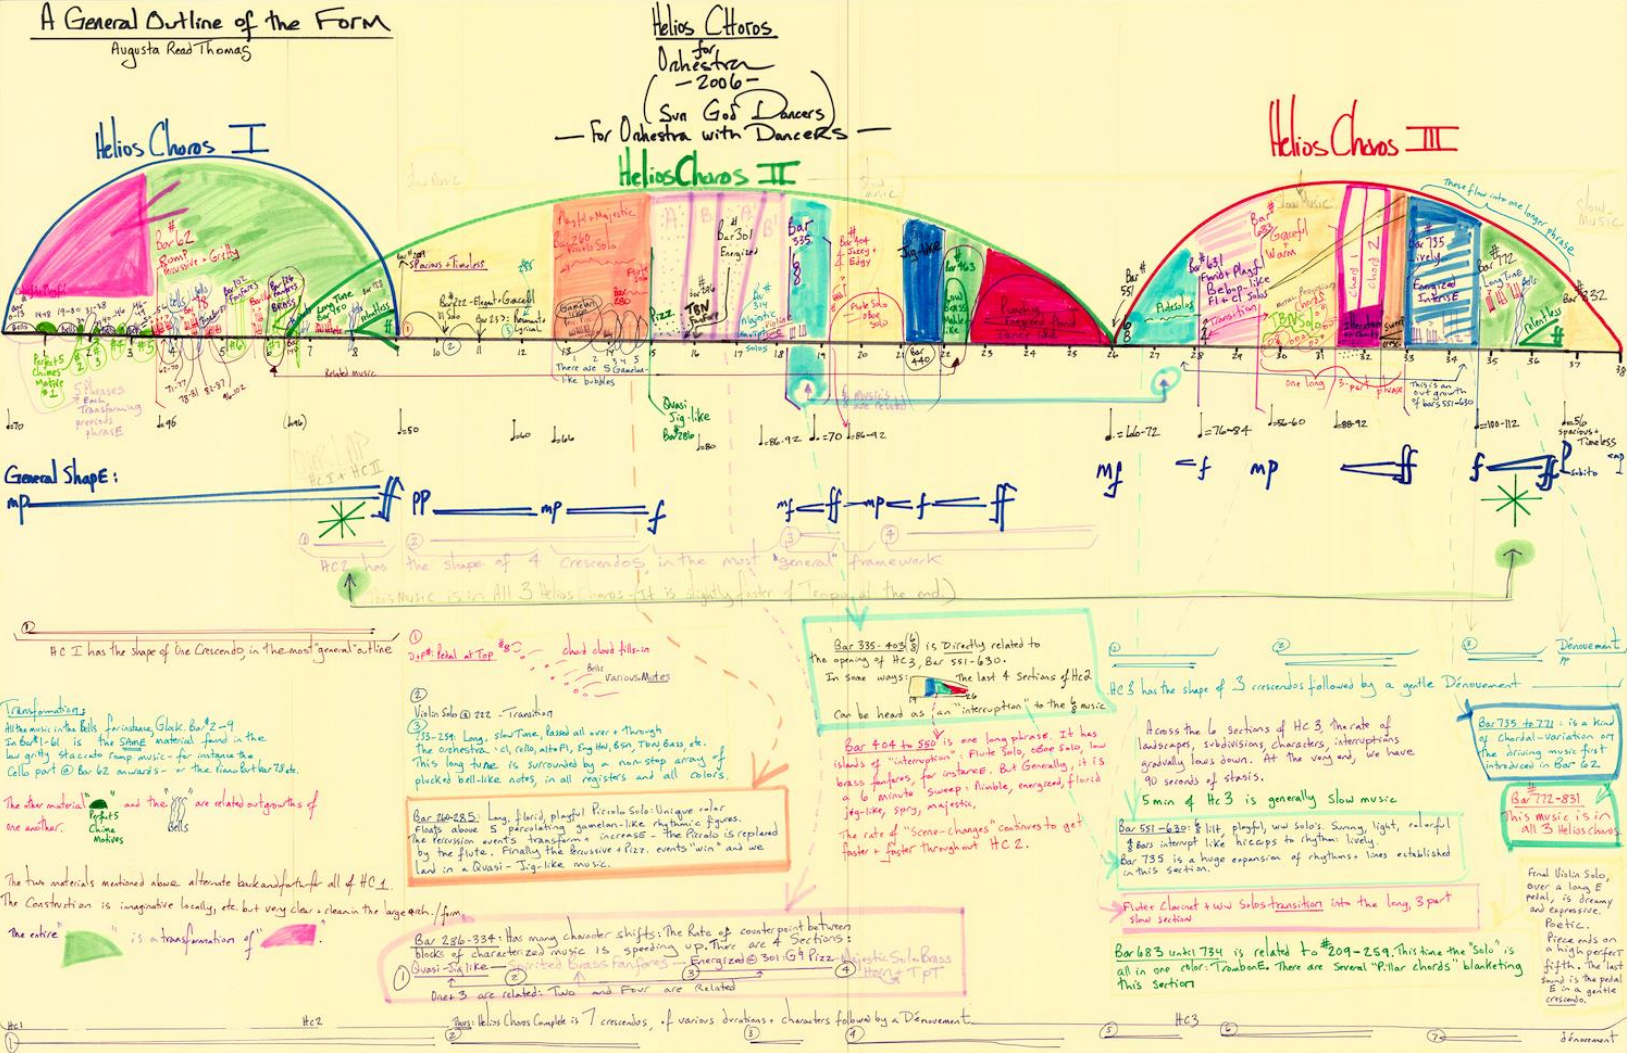 A General Outline of the Form
Augusta Read Thomas
Helios Choros
for
Orchestra
- 2006 -
(Sun God Dancers)
- For Orchestra with Dancers -
Helios Choros I
Helios Choros II
Helios Choros III
These flow into one longer phrase
Slow Music
Slow Music
Playful + Majestic
Bar 260
Piccolo Solo
Flute Solo
Bar 280
Bar #62
Romp
Percussive + Gritty
Spacious + Timeless
Bar 222 - Elegant + Graceful
Vl Solo
A
B
A'
B'
Bar 301
Energized
Pizz
TBN Fanfare
Bar 314
majestic
Violin
Solos
Bar 335
6
8
Bar 404
Jazzy +
Edgy
Flute Solo
oboe
Solo
Jig-like
Bar 440
Bar 463
Bar # 551
6
8
Flute solos
#631
Florid + Playful
Bebop-like
Fl + Cl solos
Transition
Bar # 683
Graceful
Warm
TBN Solo
Chord 1
Chord 2
Bar # 735
Lively
Energized
Intense
Bar 772
Long Tune
Bells
relentless
Bar 832
Long Tune
Bar 150
relentless
Brass
Perfect 5
Chimes
Motive
#1
5 Phrases
Each
Transforming
previous
phrase
62-70
71-77
78-81
82-87
96-102
Related music
There are 5 Gamelan-
like bubbles
Quasi
Jig-like
Bar #286
6/8 musics
are related
one long 3-part phrase
This is an
outgrowth
of bars 551-630
♩=70
♩=96
(96)
♩=50
♩=60
♩=66
♩=80
♩=86-92
♩.=70
♩=86-92
♩.=66-72
♩=76-84
♩=56-60
♩=88-92
♩=100-112
♩=56
spacious +
Timeless
General Shape:
mp ff pp mp f mf ff mp f ff mf f mp ff f ff p
subito
OVERLAP
HC I + HC II
HC2 has the shape of 4 crescendos, in the most "general" framework
This music is in All 3 Helios Choros (It is slightly faster of Tempo at the end.)
HC I has the shape of One Crescendo, in the most "general" outline
Transformation:
All the music in the Bells for instance, Glock. Bar #2-9
In Bar #1-61 is the SAME material found in the
low gritty staccato romp music - for instance the
Cello part @ Bar 62 onwards - or the Piano Part bar 78 etc.
The other material " " and the " " are related outgrowths of
one another.
Perfect 5
Chime
Motives
Bells
The two materials mentioned above alternate back and forth for all of HC 1.
The Construction is imaginative locally, etc. but very clear + clean in the large arch/form.
The entire " " is a transformation of " ".
① Pedal at Top #8
chord cloud fills-in
Bells
various Mutes
②
Violin Solo @ 222 - Transition
③
233-259: Long, slow Tune, Passed all over + through
the orchestra: cl, cello, alto Fl, Eng Hn, BSN, TBN, Bass, etc.
This long tune is surrounded by a non-stop array of
plucked bell-like notes, in all registers and all colors.
Bar 260-285: Long, florid, playful Piccolo Solo: Unique color
Floats above 5 percolating gamelan-like rhythmic figures.
The Percussion events transform + increase - the Piccolo is replaced
by the flute. Finally the Percussive + Pizz. events "win" and we
land in a Quasi-Jig-like music.
Bar 286-334: Has many character shifts: The Rate of counterpoint between
blocks of characterized music is speeding up. There are 4 Sections:
① Quasi-Jig like - ② Spirited Brass Fanfares - ③ Energized @ 301: G4 Pizz - ④ Majestic Solo Brass
Horn + TpT
One + 3 are related: Two and Four are Related
Bar 335-403 (6/8) is Directly related to
the opening of HC3, Bar 551-630.
In Some ways: The last 4 Sections of HC2
19 26
Can be heard as an "interruption" to the 6/8 music
Bar 404 to 550 is one long phrase. It has
islands of "interruption", Flute Solo, oboe Solo, low
brass fanfares, for instance. But Generally, it is
a 6 minute sweep: Nimble, energized, florid
jig-like, spry, majestic,
The rate of "Scene-changes" continues to get
faster + faster throughout HC 2.
Dénouement
HC 3 has the shape of 3 crescendos followed by a gentle Dénouement
Across the 6 sections of HC 3, the rate of
landscapes, subdivisions, characters, interruptions
gradually slows down. At the very end, we have
90 seconds of stasis.
5 min of HC3 is generally Slow music
Bar 551-630: 6/8 lilt, playful, ww solo's. Sunny, light, colorful
4/8 Bars interrupt like hiccups to rhythm: lively.
Bar 735 is a huge expansion of rhythms + lines established
in this section.
Flute + Clarinet + ww Solos transition into the long, 3 part
slow section
Bar 683 until 734 is related to #209-259. This time the "Solo" is
all in one color: Trombone. There are Several "Pillar chords" blanketing
this section
Bar 735 to 771: is a kind
of Chordal-variation on
the driving music first
introduced in Bar 62
Bar # 772-831
This music is in
all 3 Helios Choros
Final Violin Solo,
over a long E
pedal, is dreamy
and expressive.
Poetic.
Piece ends on
a high perfect
fifth. The last
sound is the pedal
E in a gentle
crescendo.
HC1
HC2
Thus: Helios Choros Complete is 7 crescendos, of various durations + characters followed by a Dénouement
HC3
① ② ③ ④ ⑤ ⑥ ⑦ dénouement